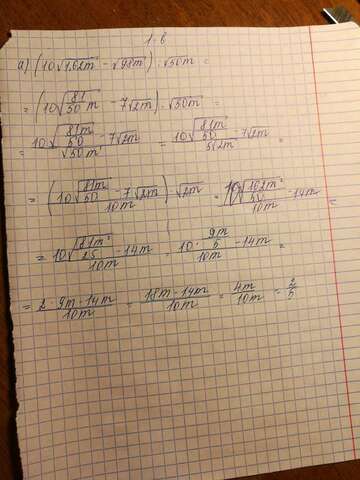 1-в
а) (10√1,62m - √98m) : √50m =
= (10√(81/50 m) - 7√2m) : √50m =
= (10√(81m/50) - 7√2m)/√50m = (10√(81m/50) - 7√2m)/5√2m
= ((10√(81m/50) - 7√2m)/10m) · √2m = (10√(162m²/50) - 14m)/10m =
= (10√(81m²/25) - 14m)/10m = (10 · 9m/5 - 14m)/10m =
= (2 · 9m - 14m)/10m = (18m - 14m)/10m = 4m/10m = 2/5